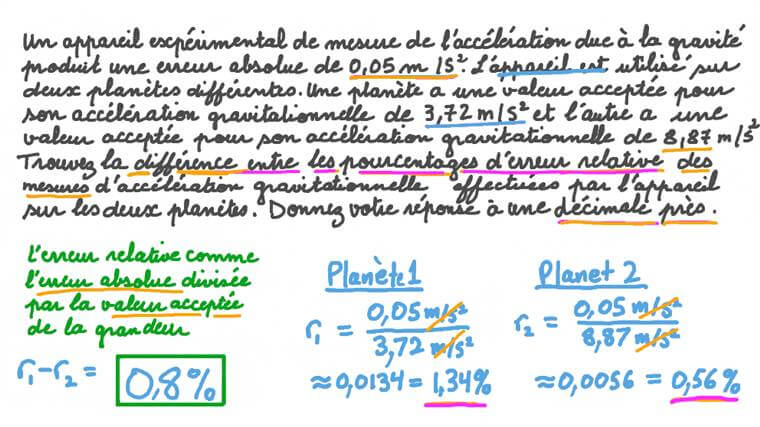 Un appareil expérimental de mesure de l'accélération due à la gravité
produit une erreur absolue de 0,05 m/s². L'appareil est utilisé sur
deux planètes différentes. Une planète a une valeur acceptée pour
son accélération gravitationnelle de 3,72 m/s² et l'autre a une
valeur acceptée pour son accélération gravitationnelle de 8,87 m/s²
Trouvez la différence entre les pourcentages d'erreur relative des
mesures d'accélération gravitationnelle effectuées par l'appareil
sur les deux planètes. Donnez votre réponse à une décimale près.
L'erreur relative comme
l'erreur absolue divisée
par la valeur acceptée
de la grandeur
r₁-r₂ = 0,8%
Planète 1
r₁ = 0,05 m/s² / 3,72 m/s²
≈0,0134 = 1,34%
Planet 2
r₂ = 0,05 m/s² / 8,87 m/s²
≈0,0056 = 0,56%